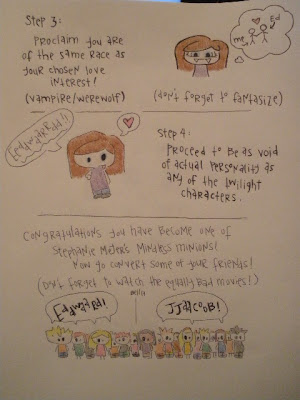 Step 3:
Proclaim you are
of the same Race as
your chosen love
interest!
(vampire/werewolf)
me
Ed
(don't forget to fantasize)
Eeddwwarrdd!!
Step 4:
Proceed to be as void
of actual personality as
any of the twilight
characters.
Congratulations you have become one of
Stephanie Meyer's Mindless minions!
Now go convert some of your friends!
(Don't forget to watch the equally Bad movies!)
Eddward!
JJaacoob!